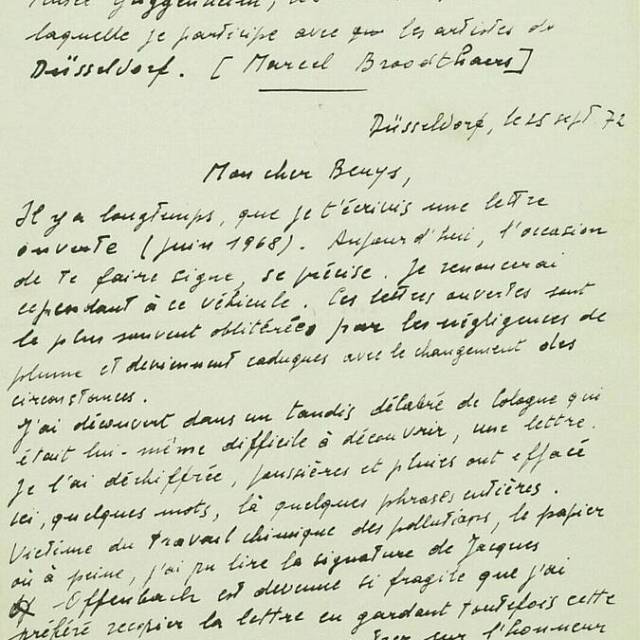 laquelle je participe avec les artistes de
Düsseldorf. [Marcel Broodthaers]
Düsseldorf, le 25 sept. 72
Mon cher Beuys,
Il y a longtemps, que je t'écrivis une lettre
ouverte (juin 1968). Aujourd'hui, l'occasion
de te faire signe, se précise. Je renoncerai
cependant à ce véhicule. Ces lettres ouvertes sont
le plus souvent oblitérées par les négligences de
plume et deviennent caduques avec le changement des
circonstances.
J'ai découvert dans un taudis délabré de Cologne qui
était lui-même difficile à découvrir, une lettre.
Je l'ai déchiffrée, poussières et pluies ont effacé
ici, quelques mots, là quelques phrases entières.
Victime du travail chimique des pollutions, le papier
où à peine, j'ai pu lire la signature de Jacques
Offenbach est devenu si fragile que j'ai
préféré recopier la lettre en gardant toutefois cette
sur l'honneur